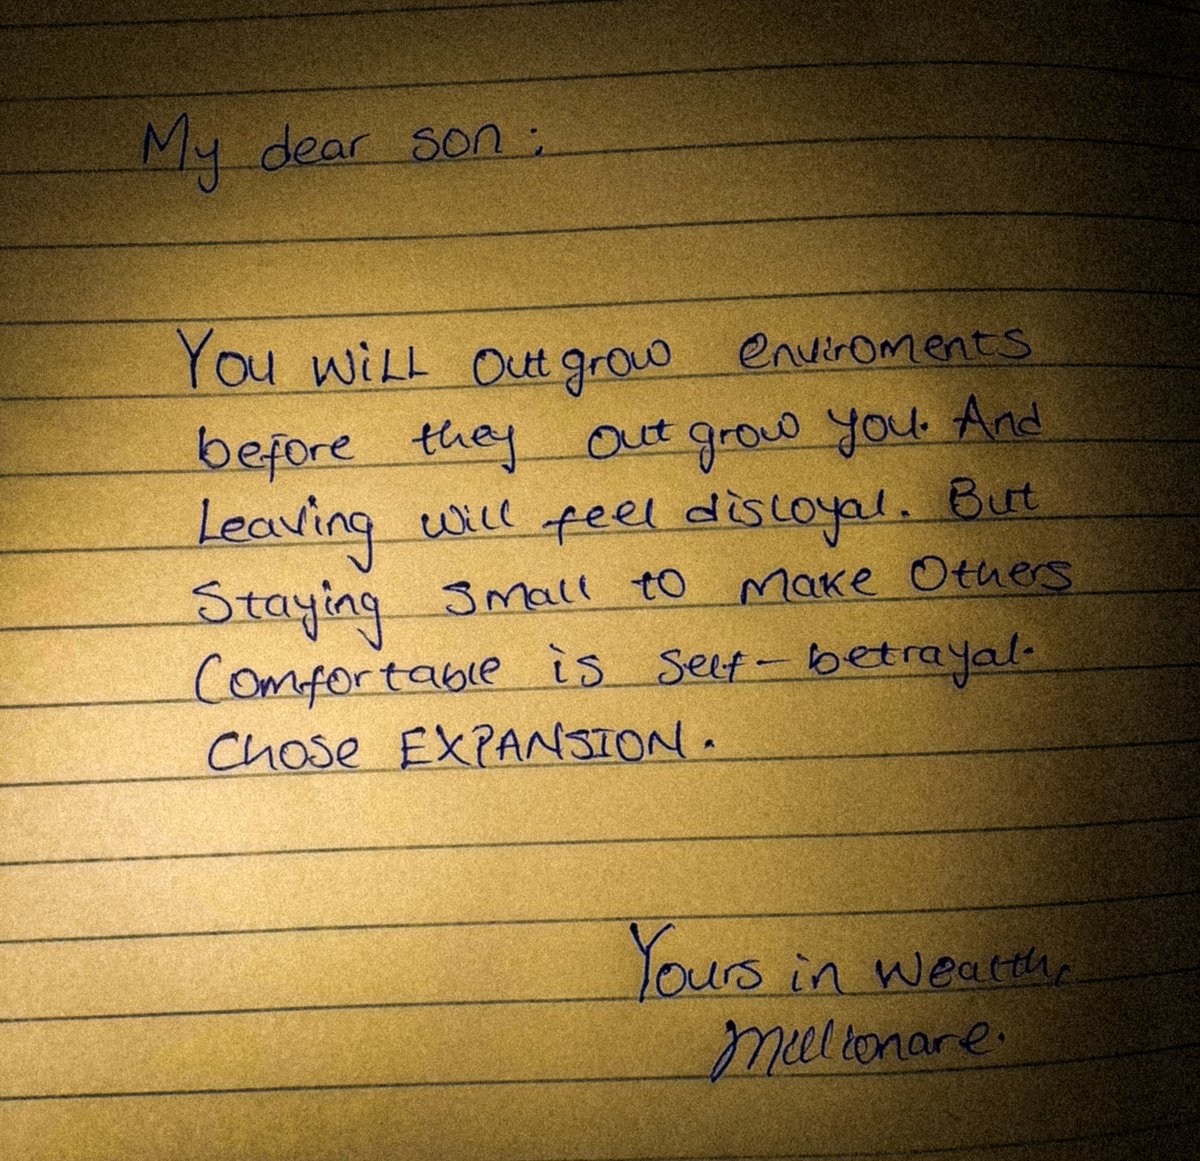 My dear son:
You WiLL outgrow enviroments
before they outgrow you. And
Leaving will feel disloyal. But
Staying small to make Others
Comfortable is self-betrayal.
Chose EXPANSION.
Yours in wealth,
Millionare.